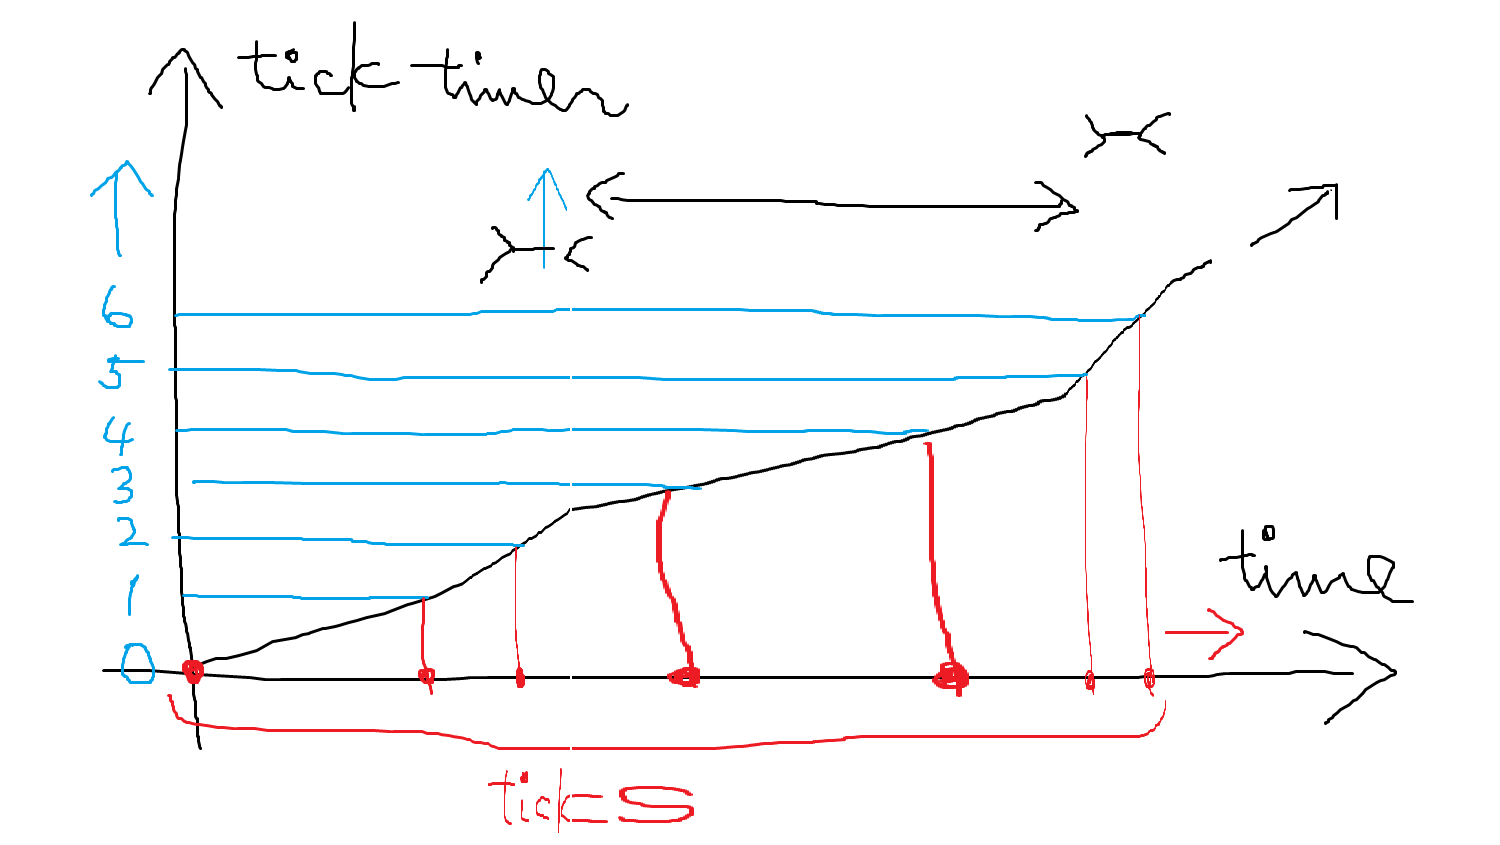 tick timer
6
5
4
3
2
1
0
time
ticks